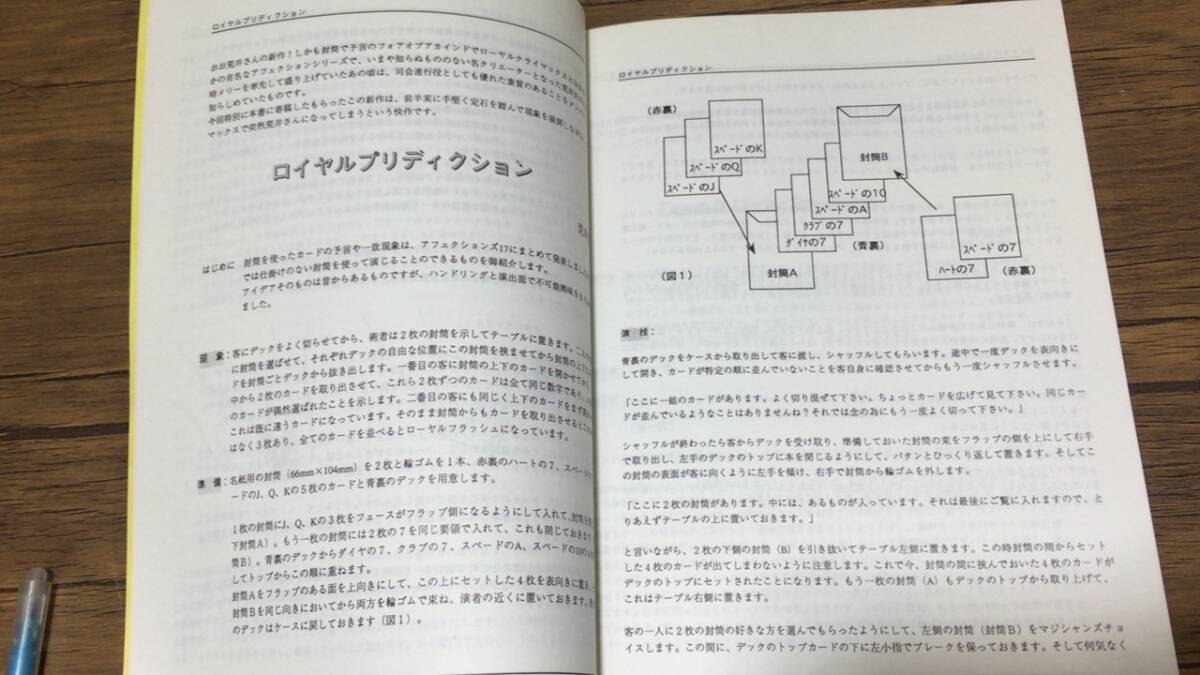 ロイヤルプリディクション
おお荒井さんの新作！しかも封筒で予言のフォアオブアカインドでローヤルクライマックスと
かの有名なアフェクションシリーズで、いまや知らぬもののない名クリエーターとなった荒井
時メリーを牽先して盛り上げていたあの頃は、司会進行役としても優れた素質のあることを
知らしめていたものです。
今回特別に本書に寄稿したもらったこの新作は、前半実に手堅く定石を踏んで現象を展開しながら
マックスで突然荒井さんになってしまうという快作です。
ロイヤルプリディクション
はじめに 封筒を使ったカードの予言や一致現象は、アフェクションズ17にまとめて発表しました
では仕掛けのない封筒を使って演じることのできるものを御紹介します。
アイデアそのものは昔からあるものですが、ハンドリングと演出面で不可能興味を
ました。
現 象：客にデックをよく切らせてから、術者は２枚の封筒を示してテーブルに置きます。二人の
に封筒を選ばせて、それぞれデックの自由な位置にこの封筒を挟ませてから封筒の上下の
ドを封筒ごとデックから抜き出します。一番目の客に封筒の上下のカードを開かせてみる
中から２枚のカードを取り出させて、これら２枚ずつのカードは全て同じ数字であり、
のカードが偶然選ばれたことを示します。二番目の客にも同じく上下のカードをまず
これは既に違うカードになっています。そのまま封筒からもカードを取り出させると
はなく３枚あり、全てのカードを並べるとローヤルフラッシュになっています。
準 備：名紙用の封筒（66mm×104mm）を２枚と輪ゴムを１本、赤裏のハートの７、スペード
ードのJ、Q、Kの５枚のカードと青裏のデックを用意します。
１枚の封筒にJ、Q、Kの３枚をフェースがフラップ側になるようにして入れて、封筒を
下封筒A）。もう一枚の封筒には２枚の７を同じ要領で入れて、これも閉じておきます
筒B）。青裏のデックからダイヤの７、クラブの７、スペードのA、スペードの10の
してトップからこの順に重ねます。
封筒Aをフラップのある面を上向きにして、この上にセットした４枚を表向きに置き、
封筒Bを同じ向きにおいてから両方を輪ゴムで束ね、演者の近くに置いておきます。
のデックはケースに戻しておきます（図１）。
ロイヤルプリディクション
（赤裏）
ｽﾍﾟｰﾄﾞのK
ｽﾍﾟｰﾄﾞのQ
ｽﾍﾟｰﾄﾞのJ
封筒B
ｽﾍﾟｰﾄﾞの10
ｽﾍﾟｰﾄﾞのA
クラブの7
ダイヤの7
（青裏）
封筒A
（図１）
ｽﾍﾟｰﾄﾞの7
ﾊｰﾄの7
（赤裏）
演 技：
青裏のデックをケースから取り出して客に渡し、シャッフルしてもらいます。途中で一度デックを表向きに
して開き、カードが特定の順に並んでいないことを客自身に確認させてからもう一度シャッフルさせます。
「ここに一組のカードがあります。よく切り混ぜて下さい。ちょっとカードを広げて見て下さい。同じカー
ドが並んでいるようなことはありませんね？それでは念の為にもう一度よく切って下さい。」
シャッフルが終わったら客からデックを受け取り、準備しておいた封筒の束をフラップの側を上にして右手
で取り出し、左手のデックのトップに本を閉じるようにして、パタンとひっくり返して置きます。そしてこ
の封筒の表面が客に向くように左手を傾け、右手で封筒から輪ゴムを外します。
「ここに２枚の封筒があります。中には、あるものが入っています。それは最後にご覧に入れますので、と
りあえずテーブルの上に置いておきます。」
と言いながら、２枚の下側の封筒（B）を引き抜いてテーブル左側に置きます。この時封筒の間からセット
した４枚のカードが出てしまわないように注意します。これで今、封筒の間に挟んでおいた４枚のカードが
デックのトップにセットされたことになります。もう一枚の封筒（A）もデックのトップから取り上げて、
これはテーブル右側に置きます。
客の一人に２枚の封筒の好きな方を選んでもらったようにして、左側の封筒（封筒B）をマジシャンズチョ
イスします。この間に、デックのトップカードの下に左小指でブレークを保っておきます。そして何気なく